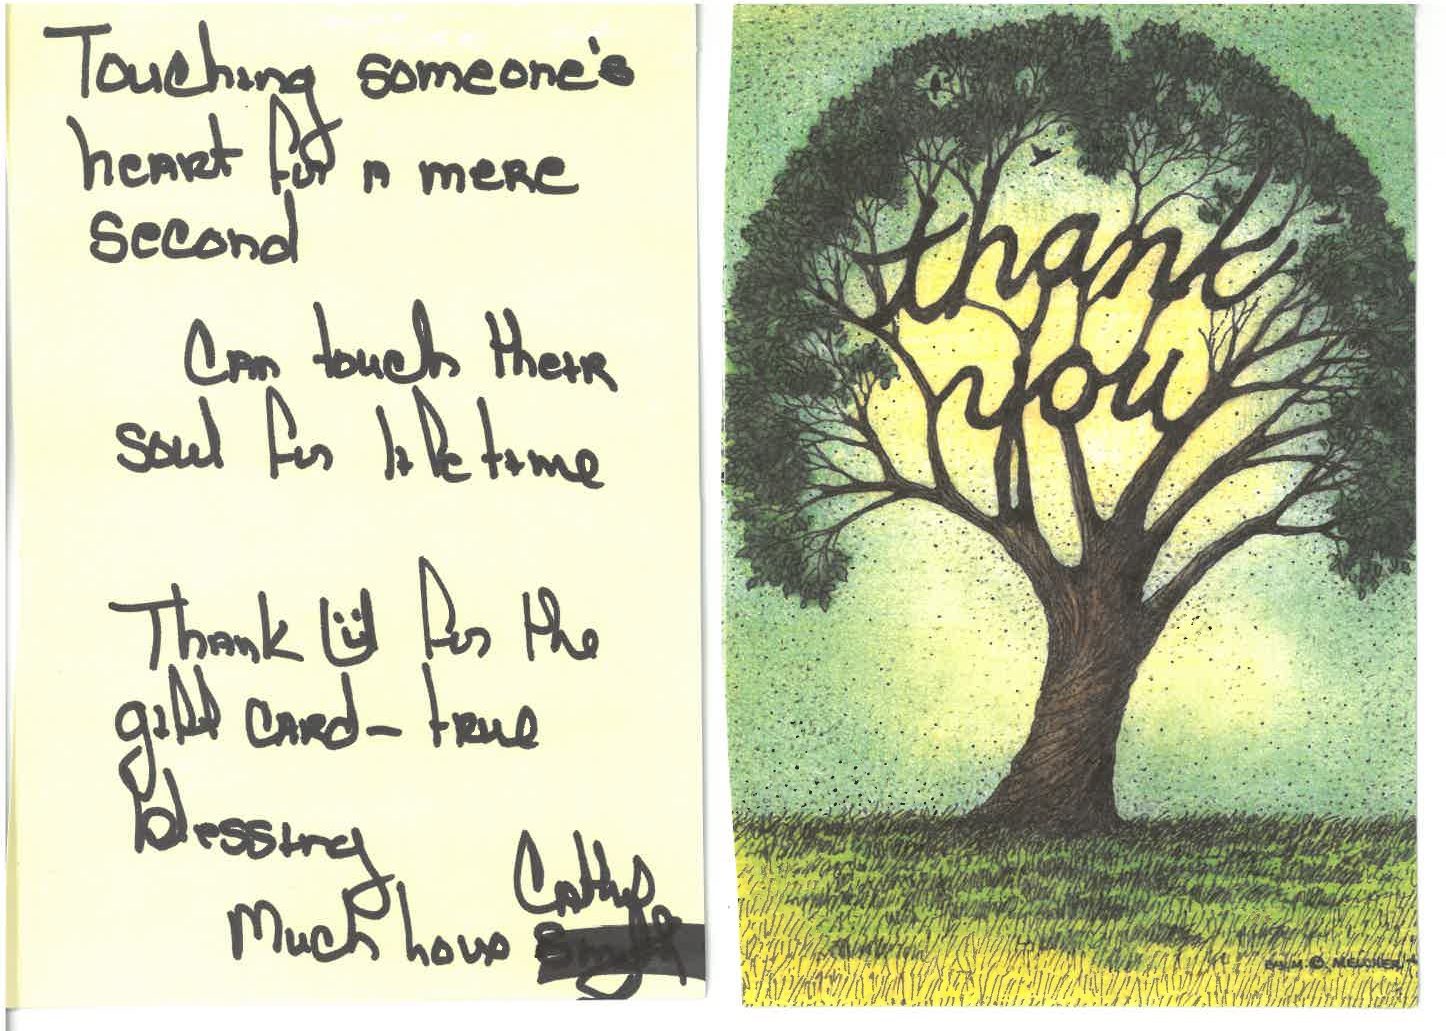 Touching someone's
heart for a mere
second
Can touch their
soul for lifetime
Thank U for the
gift card – true
blessing
Much Love
Cathy
thank
you